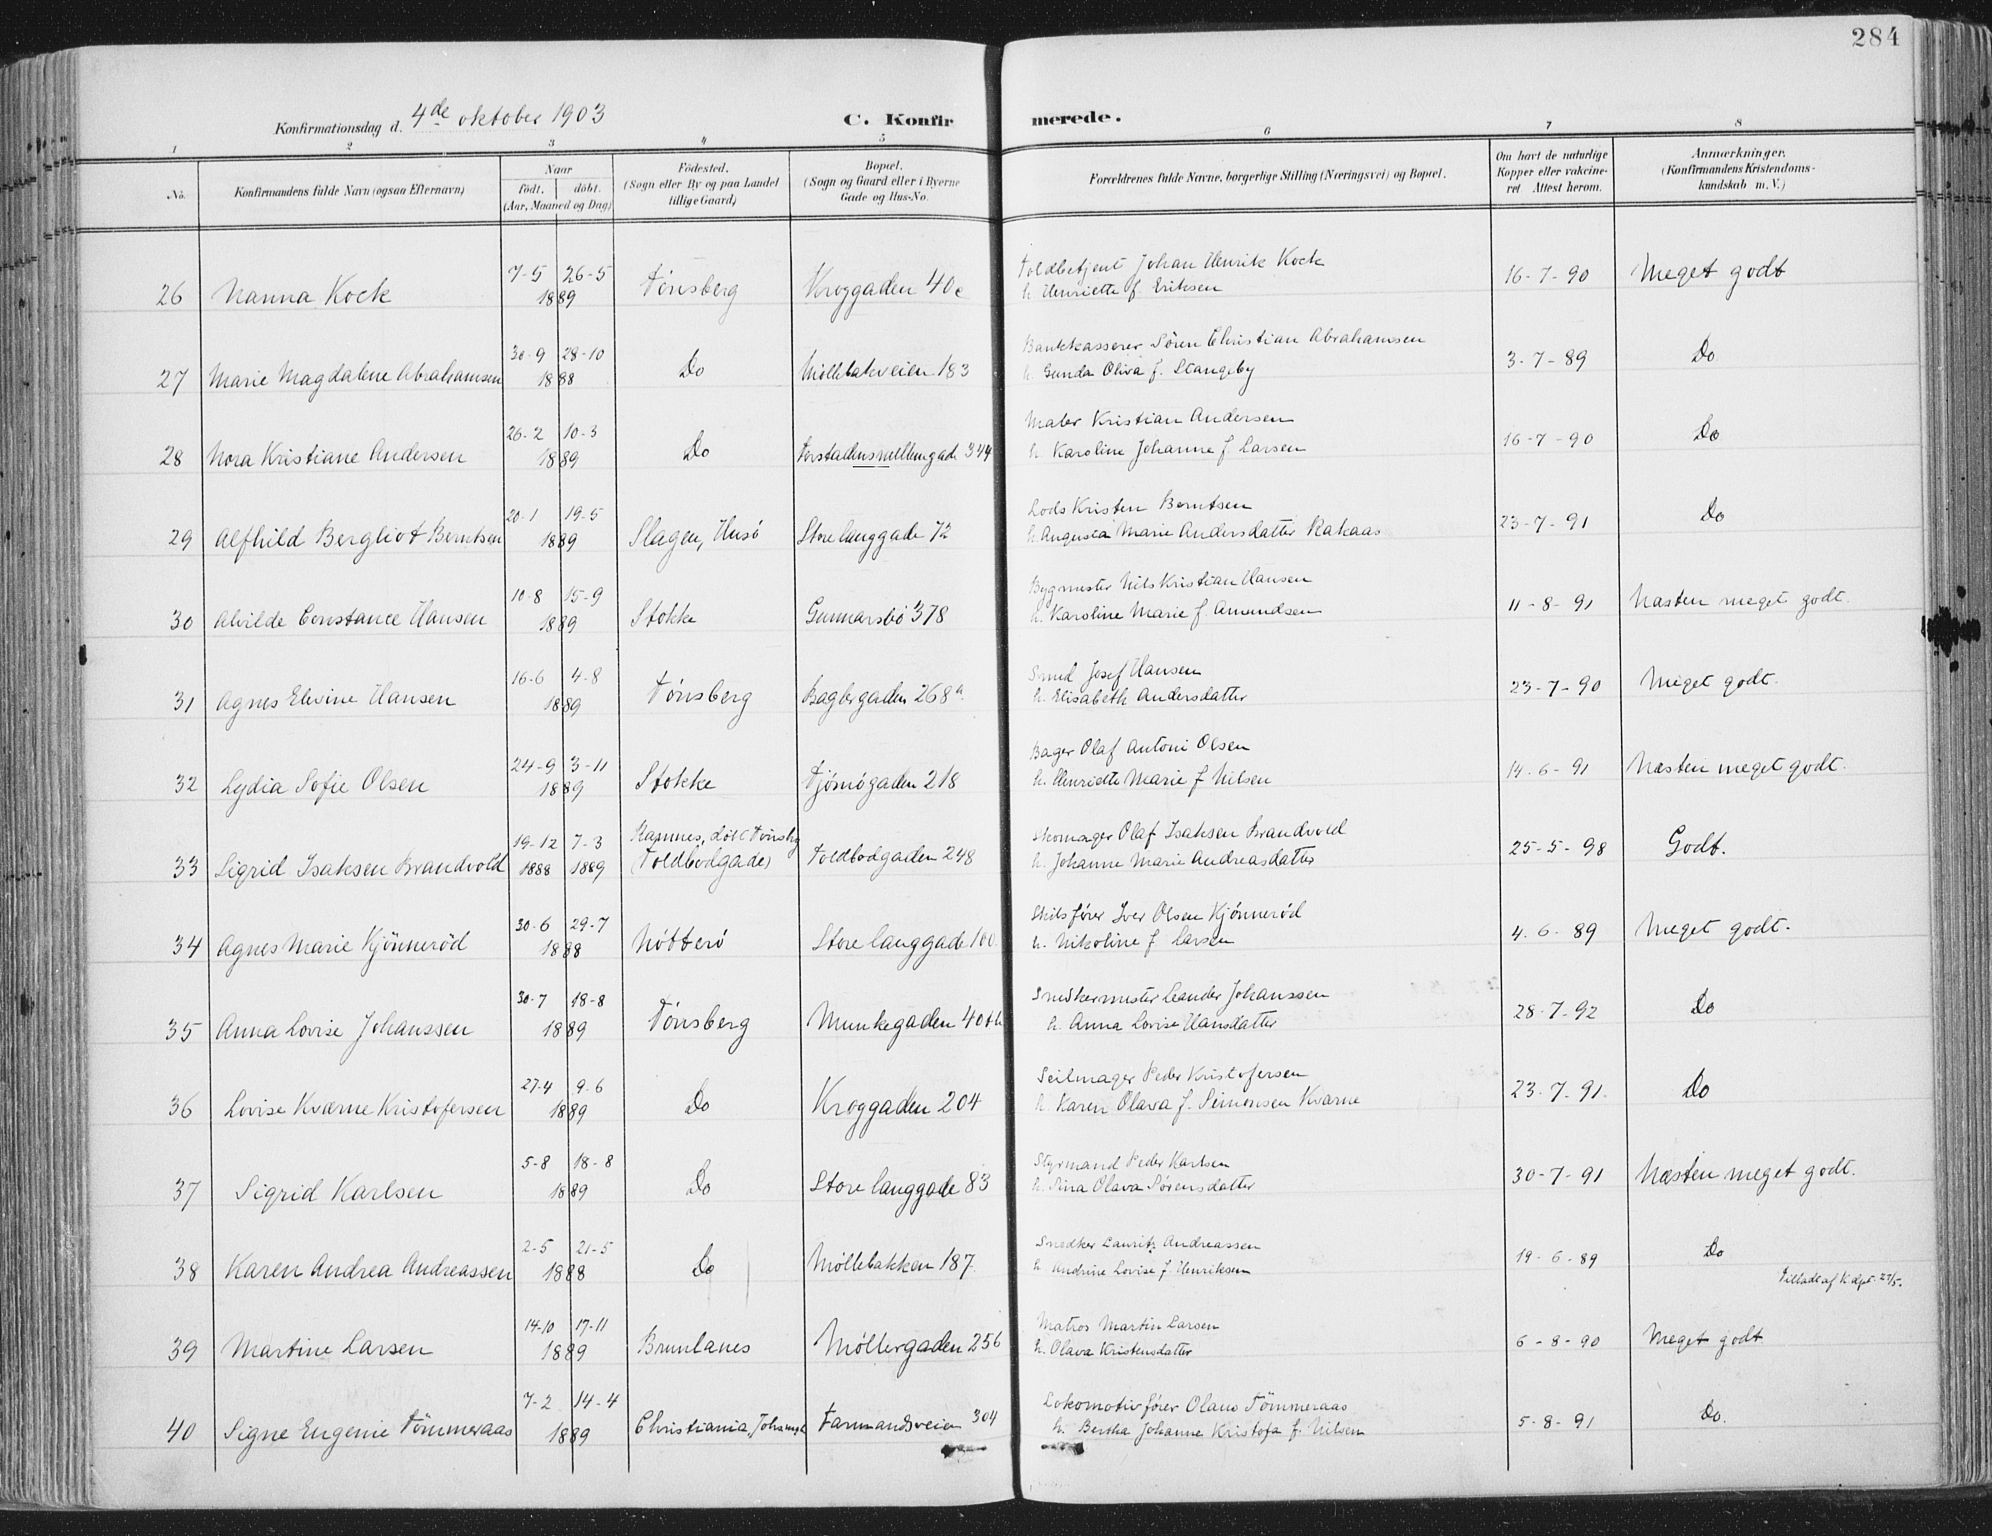 284
Konfirmationsdag d. 4de oktober 1903 C. Konfirmerede.
1 2 3 4 5 6 7 8
No. Konfirmandens fulde Navn (ogsaa Efternavn) Naar født. døbt. (Aar, Maaned og Dag) Fødested. (Sogn eller By og paa Landet tillige Gaard) Bopæl. (Sogn og Gaard eller i Byerne Gade og Hus-No. Forældrenes fulde Navne, borgerlige Stilling (Næringsvei) og Bopæl. Om havt de naturlige Kopper eller vakcineret Attest herom. Anmærkninger. (Konfirmandens Kristendomskundskab m. V.)
26 Nanna Kock 7-5 26-5 1889 Tønsberg Kroggaden 40c Toldbetjent Johan Henrik Kock
h. Henriette f. Eriksen 16-7-90 Meget godt
27 Marie Magdalene Abrahamsen 30-9 28-10 1888 Do Møllebakveien 183 Bankkasserer Søren Christian Abrahamsen
h. Gunda Oliva f. Stangeby 3-7-89 Do
28 Nora Kristiane Andersen 26-2 10-3 1889 Do Forstadens mellemgade 344 Maler Kristian Andersen
h. Karoline Johanne f Larsen 16-7-90 Do
29 Alfhild Bergliot Berntsen 20-1 19-5 1889 Slagen, Husø Store langgade 72 Lods Kristen Berntsen
h. Augusta Marie Andersdatter Rakaas 23-7-91 Do
30 Alvilde Constance Hansen 10-8 15-9 1889 Stokke Gunnarsbø 378 Bygmester Nils Kristian Hansen
h. Karoline Marie f. Amundsen 11-8-91 Næsten meget godt.
31 Agnes Elevine Hansen 16-6 4-8 1889 Tønsberg Baglergaden 268a. Smed Josef Hansen
h. Elisabeth Andersdatter 23-7-90 Meget godt.
32 Lydia Sofie Olsen 24-9 3-11 1889 Stokke Tjømøgaden 218 Bager Olaf Antoni Olsen
h. Henriette Marie f Nilsen 14-6-91 Næsten meget godt.
33 Sigrid Isaksen Brandvold 19-12 1888 7-3 1889 Ramnes, døbt Tønsbg
(Toldbodgade) Toldbodgaden 248 Skomager Olaf Isaksen Brandvold
h. Johanne Marie Andreasdatter 25-5-98 Godt.
34 Agnes Marie Kjønnerød 30-6 29-7 1888 Nøtterø Store langgade 100 Skibsfører Iver Olsen Kjønnerød
h. Nikoline f Larsen 4-6-89 Meget godt.
35 Anna Lovise Johanssen 30-7 18-8 1889 Tønsberg Munkegaden 40 Snedkermester Leander Johanssen
h. Anna Lovise Hansdatter 28-7-92 Do
36 Lovise Kværne Kristofersen 27-4 9-6 1889 Do Kroggaden 204 Seilmager Peder Kristofersen
h. Karen Olava f. Simensen Kværne 23-7-91. Do
37 Sigrid Karlsen 5-8 18-8 1889 Do Store langgade 83 Styrmand Peder Karlsen
h. Sina Olava Sørensdatter 30-7-91 Næsten meget godt.
38 Karen Andrea Andreassen 2-5 21-5 1888 Do Møllebakken 187. Snedker Lauritz Andreassen
h Andrine Lovise f. Henriksen 19-6-89 Do
Tilladt af K.dpt. 27/5.
39 Martine Larsen 14-10 17-11 1889 Brunlanes Møllergaden 256 Matros Martin Larsen
h. Olava Kristensdatter 6-8-90 Meget godt
40 Signe Eugenie Tømmeraas 7-2 14-4 1889 Christiania, Farmandsveien 304 Lokomotivfører Olaus Tømmeraas
h. Bertha Johanne Kristofa f. Nilsen 5-8-91 Do.